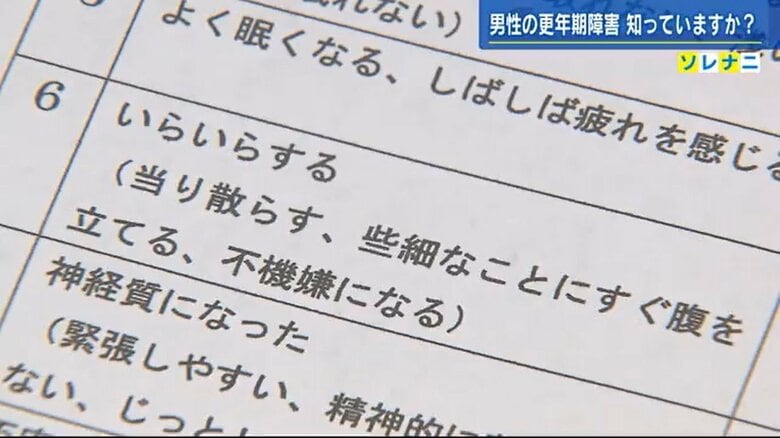 男性の更年期障害 知っていますか？
ソレナニ
ない）
よく眠くなる、しばしば疲れを感じる
6
いらいらする
（当り散らす、些細なことにすぐ腹を
立てる、不機嫌になる）
神経質になった
（緊張しやすい、精神的に
ない、じっと